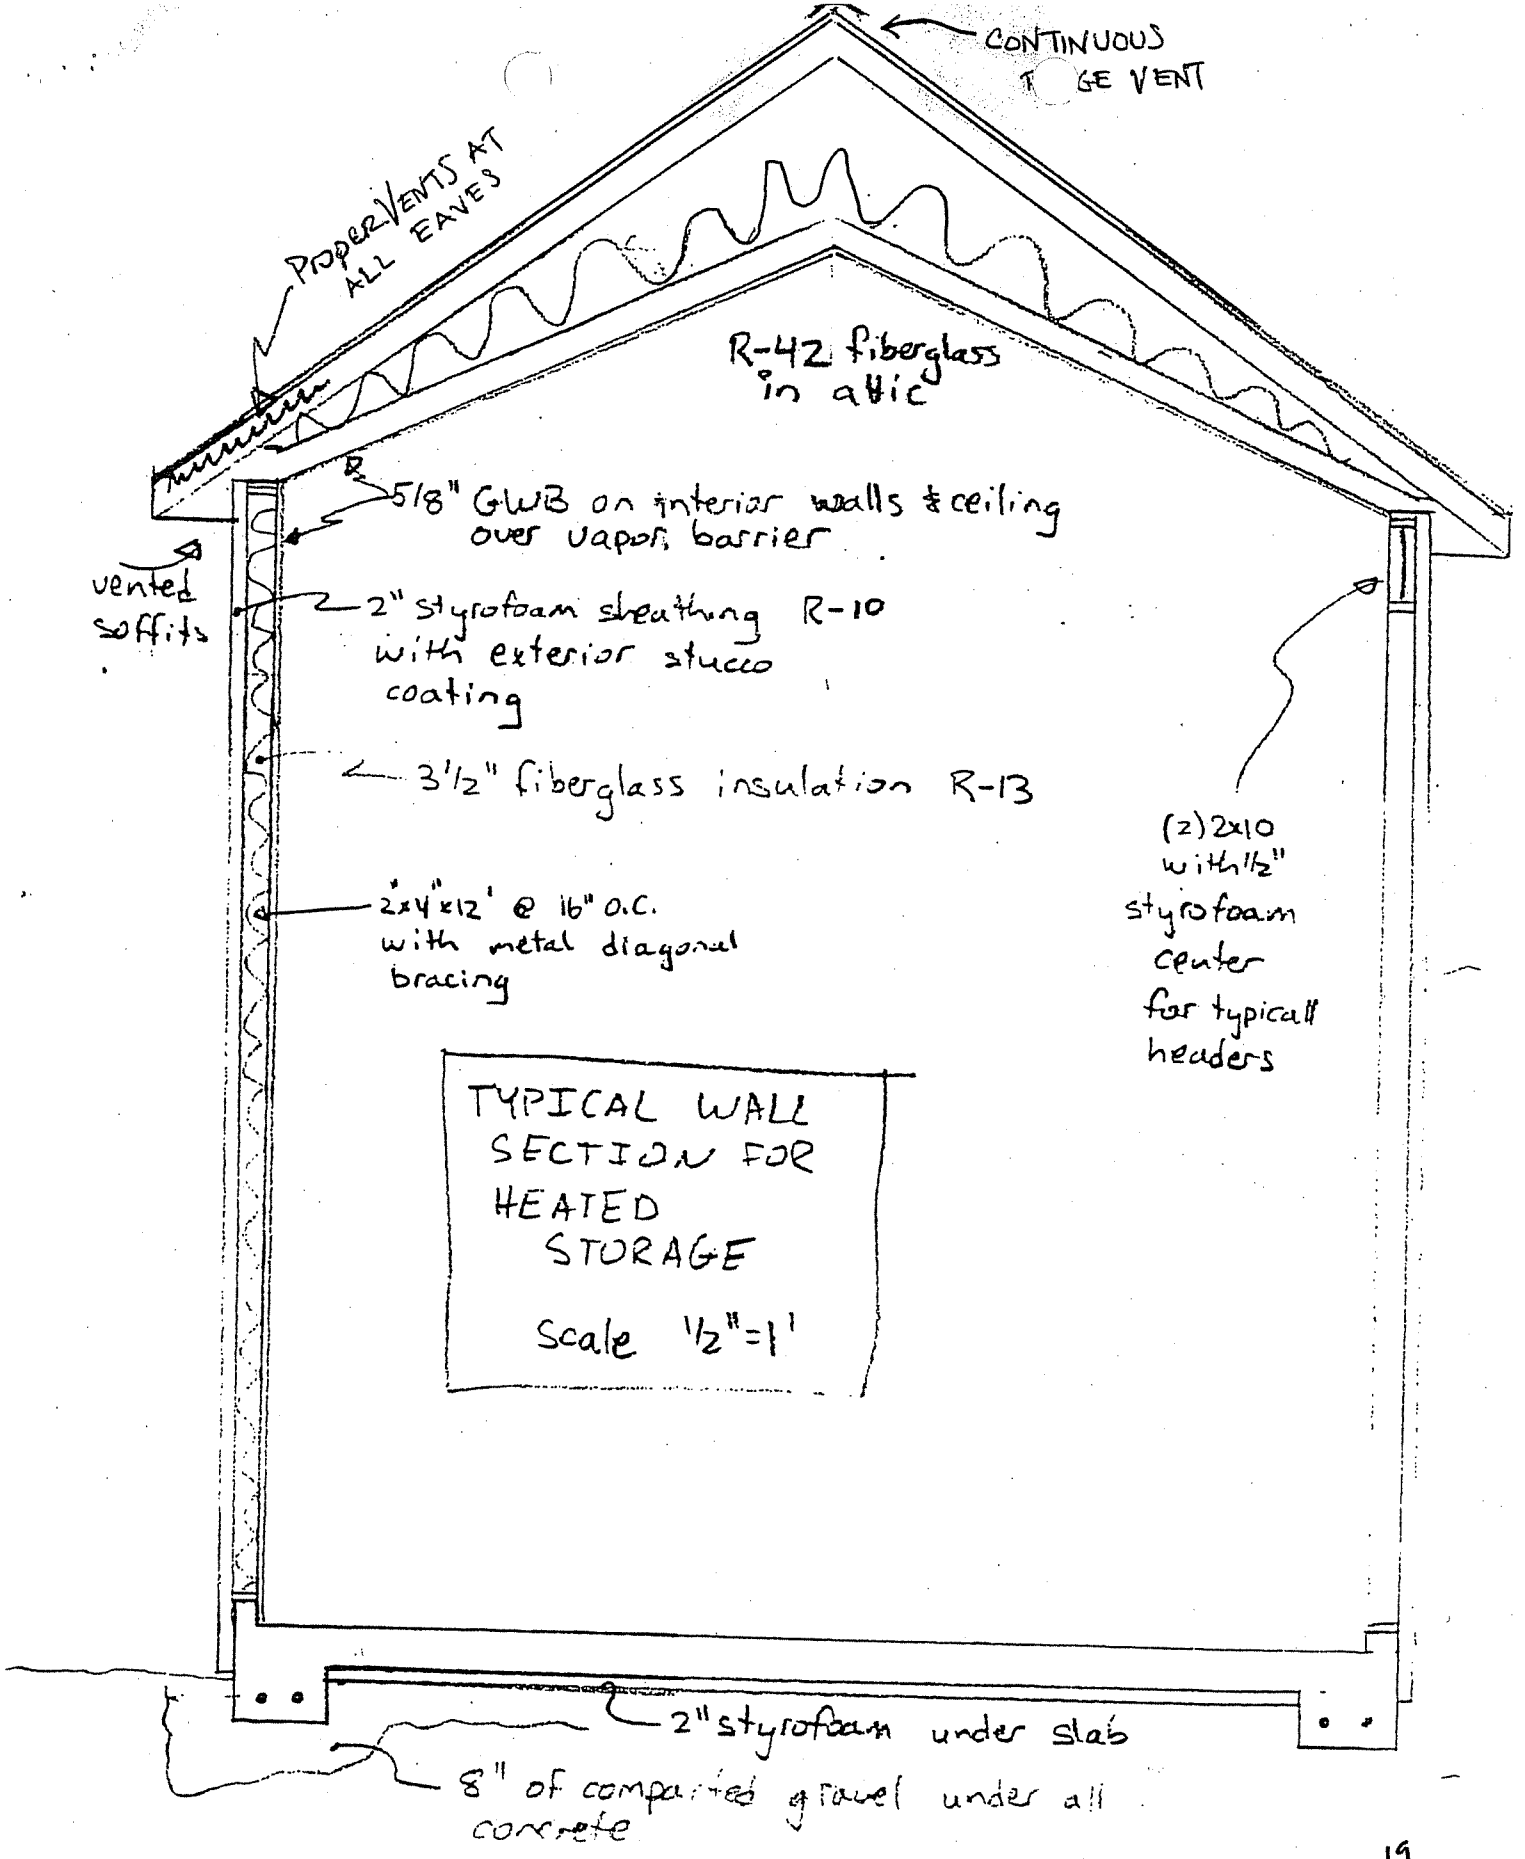 CONTINUOUS
GE VENT
PROPERVENTS AT
ALL EAVES
R-42 fiberglass
in attic
5/8" GWB on interior walls & ceiling
over vapor barrier
vented
soffits
2" styrofoam sheathing R-10
with exterior stucco
coating
3 1/2" fiberglass insulation R-13
(2) 2x10
with 1/2"
styrofoam
center
for typicall
headers
2"x4"x12' @ 16" O.C.
with metal diagonal
bracing
TYPICAL WALL
SECTION FOR
HEATED
STORAGE
Scale 1/2"=1'
2" styrofoam under slab
8" of compacted gravel under all
concrete
19